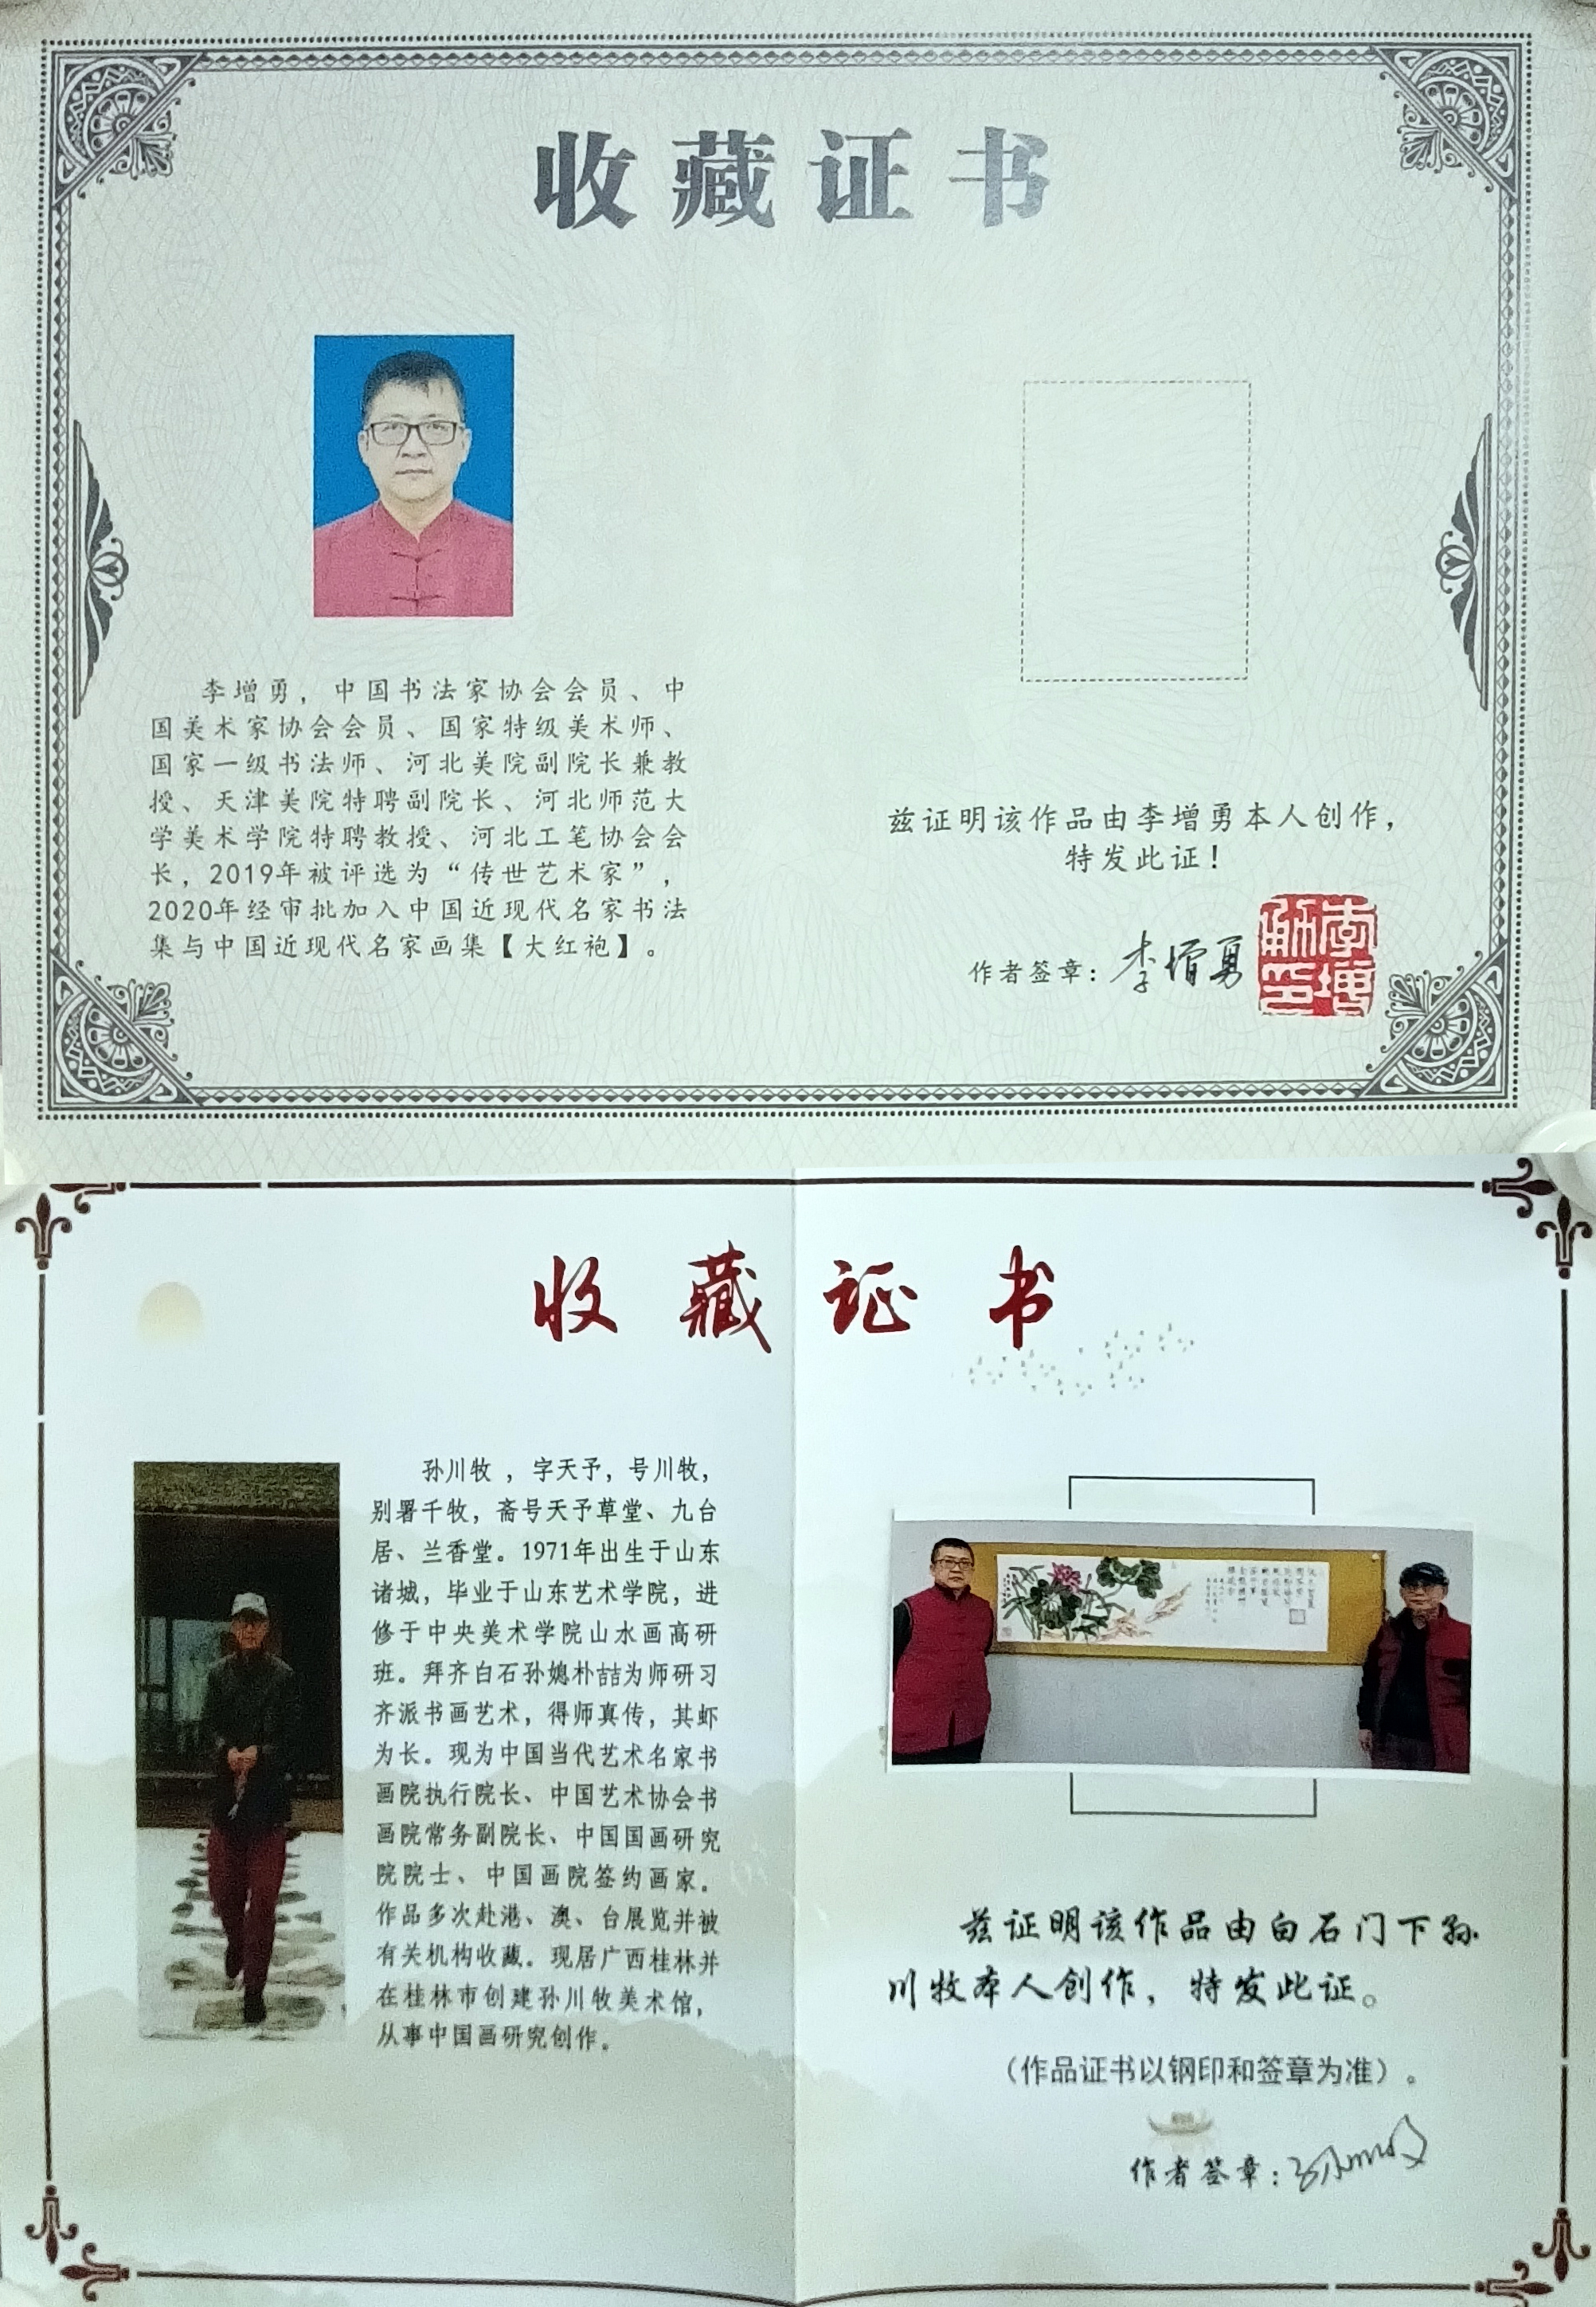 收藏证书
李增勇，中国书法家协会会员、中
国美术家协会会员、国家特级美术师、
国家一级书法师、河北美院副院长兼教
授、天津美院特聘副院长、河北师范大
学美术学院特聘教授、河北工笔协会会
长，2019年被评选为“传世艺术家”，
2020年经审批加入中国近现代名家书法
集与中国近现代名家画集【大红袍】。
兹证明该作品由李增勇本人创作，
特发此证！
作者签章：李增勇
收藏证书
孙川牧，字天予，号川牧，
别署千牧，斋号天予草堂、九台
居、兰香堂。1971年出生于山东
诸城，毕业于山东艺术学院，进
修于中央美术学院山水画高研
班。拜齐白石孙媳朴喆为师研习
齐派书画艺术，得师真传，其虾
为长。现为中国当代艺术名家书
画院执行院长、中国艺术协会书
画院常务副院长、中国国画研究
院院士、中国画院签约画家。
作品多次赴港、澳、台展览并被
有关机构收藏。现居广西桂林并
在桂林市创建孙川牧美术馆，
从事中国画研究创作。
兹证明该作品由白石门下孙
川牧本人创作，特发此证。
（作品证书以钢印和签章为准）。
作者签章：孙川牧